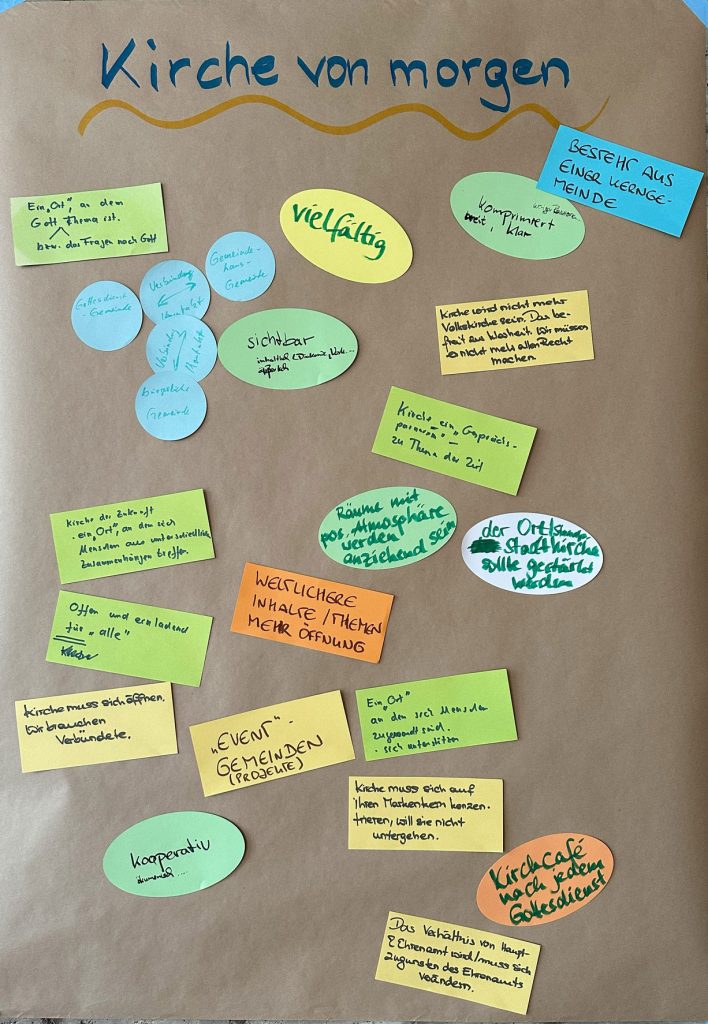 Kirche von morgen
BESTEHT AUS
EINER KERNGE-
MEINDE
Ein „Ort", an dem
Gott Thema ist.
bzw. das Fragen nach Gott
vielfältig
komprimiert
breit, klar
Gemeinde-
haus-
Gemeinde
Verbindung
Gottesdienst
-Gemeinde
Verbindung
bürgerliche
Gemeinde
sichtbar
Kirche wird nicht mehr
Volkskirche sein. Das be-
freit zur Klarheit. Wir müssen
es nicht mehr allen Recht
machen.
Kirche ein „Gesprächs-
partner" –
zu Thema der Zeit
Räume mit
pos. Atmosphäre
werden
anziehend sein
der Ort/
Stadtkirche
sollte gestärkt
werden
Kirche der Zukunft
ein „Ort", an dem sich
Menschen aus unterschiedlichen
Zusammenhängen treffen.
WELTLICHERE
INHALTE / THEMEN
MEHR ÖFFNUNG
Offen und einladend
für „alle"
Kirche muss sich öffnen.
Wir brauchen
Verbündete.
„EVENT"-
GEMEINDEN
(PROJEKTE)
Ein „Ort"
an dem sich Menschen
zugewandt sind.
- sich unterstützen
Kirche muss sich auf
ihren Markenkern konzen-
trieren, will sie nicht
untergehen.
kooperativ
ökumenisch ....
Kirchcafé
nach jedem
Gottesdienst
Das Verhältnis von Haupt-
& Ehrenamt wird/muss sich
zugunsten des Ehrenamts
verändern.